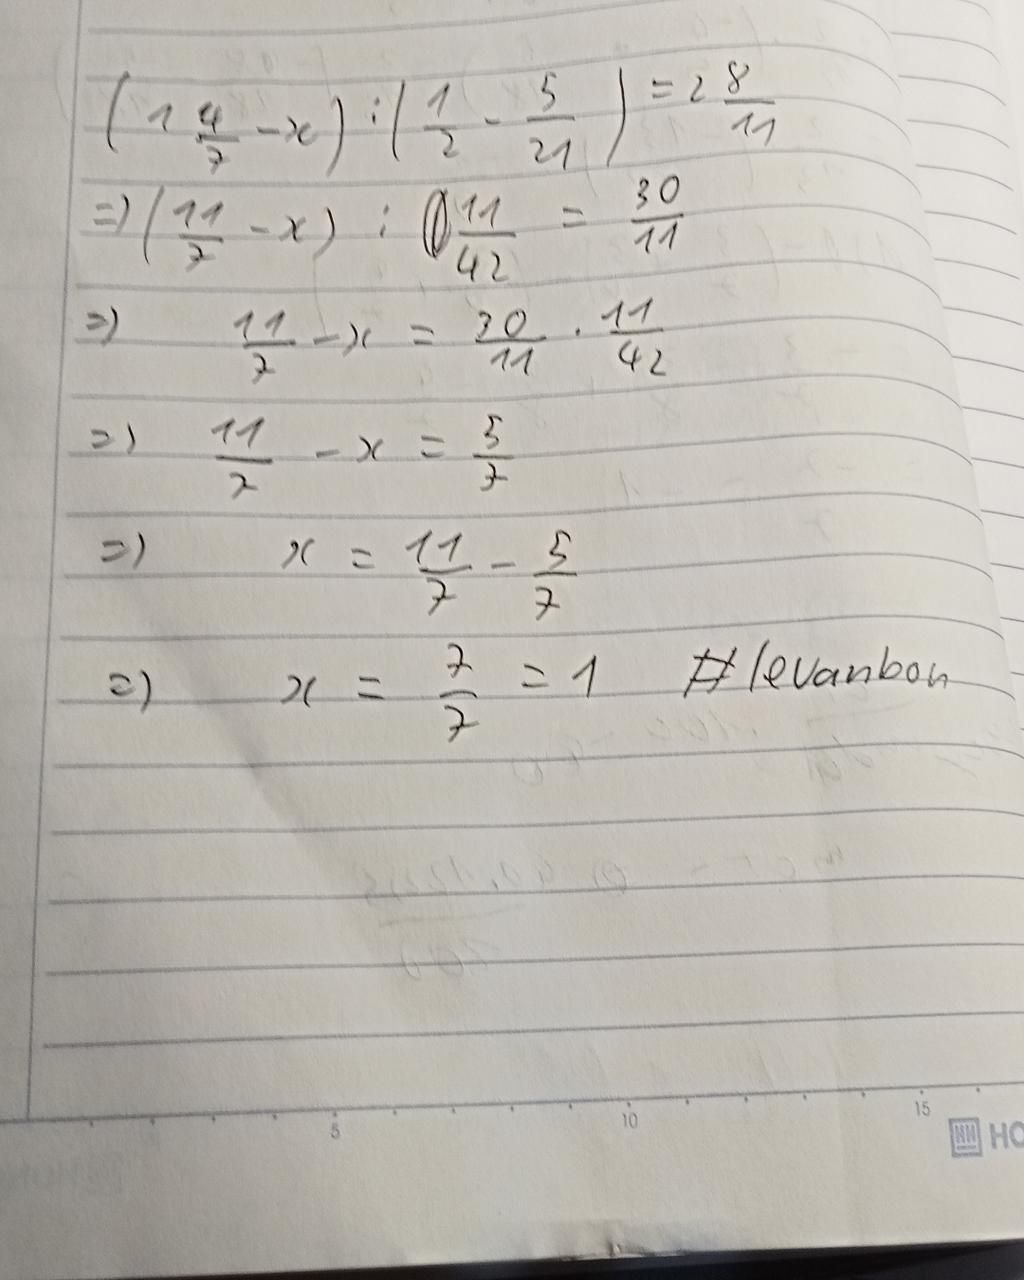 (1 4/7 - x) : (1/2 - 5/21) = 2 8/11
=) (11/7 - x) : 11/42 = 30/11
=) 11/7 - x = 30/11 . 11/42
=) 11/7 - x = 5/7
=) x = 11/7 - 5/7
=) x = 7/7 = 1 #levanbon
5 10 15
HO